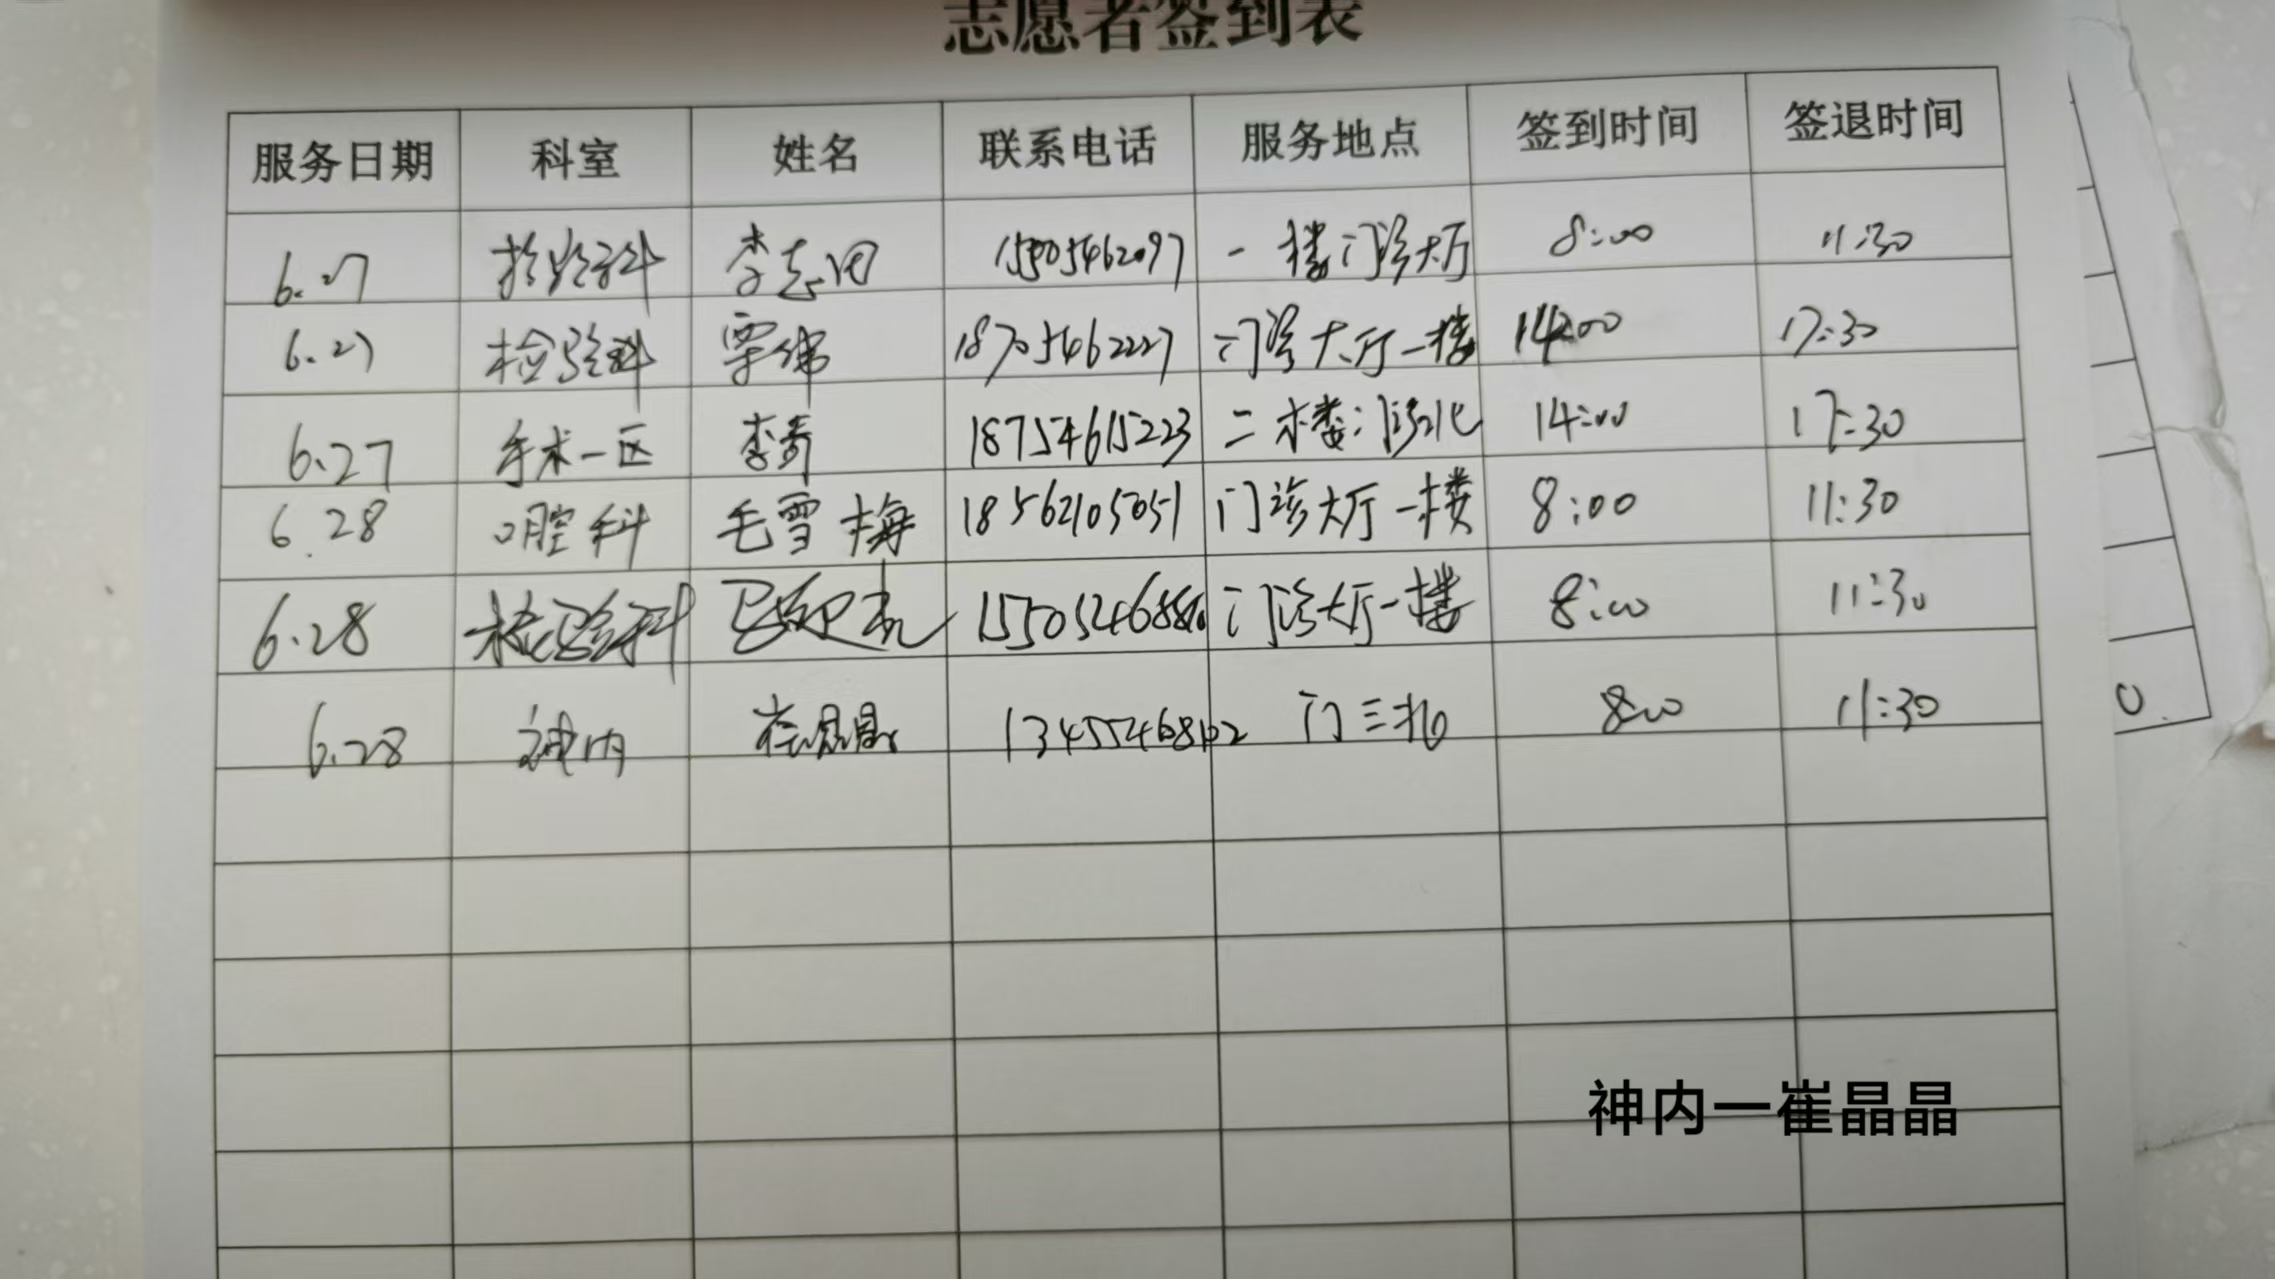 志愿者签到表
服务日期 科室 姓名 联系电话 服务地点 签到时间 签退时间
6.27 检验科 李志 一楼门诊大厅 8:00 11:30
6.27 检验科 栗伟 18705462227 门诊大厅一楼 14:00 17:30
6.27 手术一区 李青 18754615223 二楼门诊北 14:00 17:30
6.28 口腔科 毛雪梅 18562105051 门诊大厅一楼 8:00 11:30
6.28 检验科 门诊大厅一楼 8:00 11:30
6.28 神内 崔晶晶 门三北 8:00 11:30
神内一崔晶晶